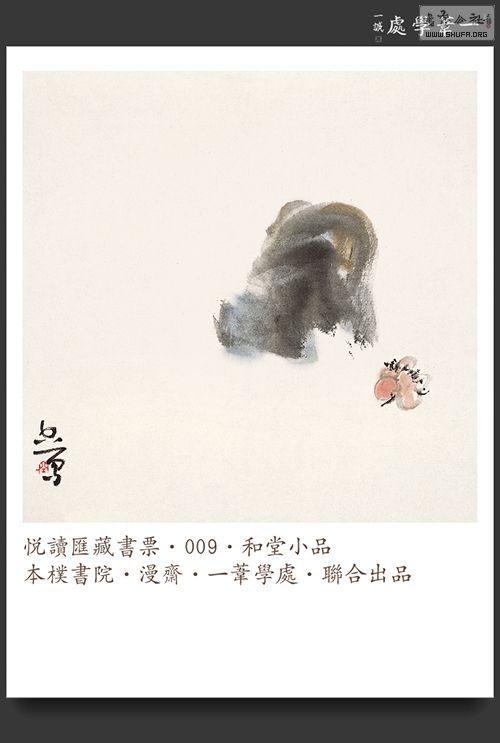 一葦學處
一誠
WWW.SHUFA.ORG
悦讀匯藏書票·009·和堂小品
本樸書院·漫齋·一葦學處·聯合出品